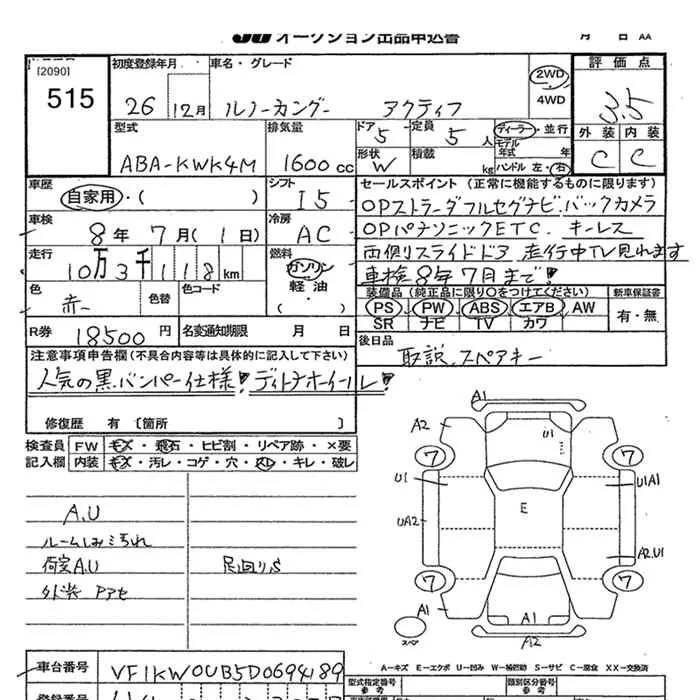 JU オークション出品申込書 月 日 AA
[2090]
515
初度登録年月
26 12月
車名・グレード
ルノーカングー アクティフ
2WD
4WD
評価点
3.5
外装 内装
C C
型式
ABA-KWK4M
排気量
1600cc
ドア 5
定員 5 人
形状 W
積載 kg
ディーラー・並行
モデル年式 年
ハンドル 左・右
車歴
自家用・( )
シフト
I5
セールスポイント (正常に機能するものに限ります)
OPストラーダフルセグナビ、バックカメラ
OPパナソニックETC、キーレス
両側スライドドア、走行中TV見れます
車検8年7月まで!
車検
8年 7月( 1日)
冷房
AC
走行
10万3千118km
燃料
ガソリン
軽油
( )
色
赤
色替
色コード
装備品 (純正品に限り○をつけてください)
PS PW ABS エアB AW
SR ナビ TV カワ
新車保証書
有・無
R券
18500円
名変通知期限 月 日
後日品
取説、スペアキー
注意事項申告欄 (不具合内容等は具体的に記入して下さい)
人気の黒バンパー仕様! デイトナホイール!
修復歴 有 〔箇所 〕
検査員
記入欄
FW キズ・飛石・ヒビ割・リペア跡・×要
内装 キズ・汚レ・コゲ・穴・スレ・キレ・破レ
A.U
ルームしみ汚れ
荷室A.U
外装 アセ
足回りS
A1
A2
U1
7
7
U1
U1A1
E
UA2
A2.U1
7
7
A1
A1
A2
スペア
A=キズ E=エクボ U=凹み W=補修跡 S=サビ C=腐食 XX=交換済
車台番号
VF1KW0UB5D0694189
型式指定番号
参考
類別区分番号
参考
登録番号